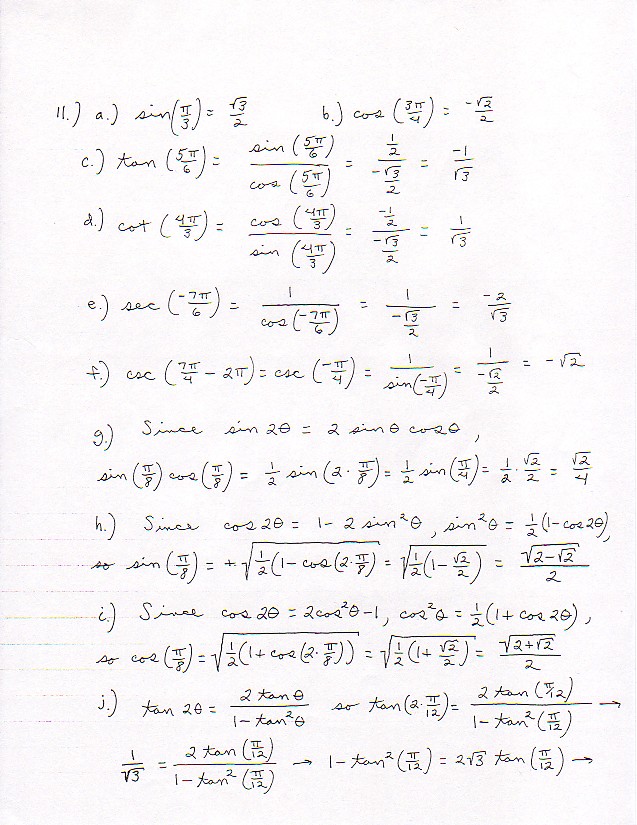 11.) a.) sin(π/3) = √3/2   b.) cos(3π/4) = -√2/2
c.) tan(5π/6) = sin(5π/6)/cos(5π/6) = (1/2)/(-√3/2) = -1/√3
d.) cot(4π/3) = cos(4π/3)/sin(4π/3) = (-1/2)/(-√3/2) = 1/√3
e.) sec(-7π/6) = 1/cos(-7π/6) = 1/(-√3/2) = -2/√3
f.) csc(7π/4 - 2π) = csc(-π/4) = 1/sin(-π/4) = 1/(-√2/2) = -√2
g.) Since sin 2θ = 2 sin θ cos θ,
sin(π/8) cos(π/8) = 1/2 sin(2·π/8) = 1/2 sin(π/4) = 1/2 · √2/2 = √2/4
h.) Since cos 2θ = 1 - 2 sin²θ, sin²θ = 1/2(1-cos 2θ),
so sin(π/8) = +√(1/2(1-cos(2·π/8)) = √(1/2(1-√2/2)) = √(2-√2)/2
i.) Since cos 2θ = 2cos²θ-1, cos²θ = 1/2(1+cos 2θ),
so cos(π/8) = √(1/2(1+cos(2·π/8))) = √(1/2(1+√2/2)) = √(2+√2)/2
j.) tan 2θ = 2 tan θ/(1-tan²θ) so tan(2·π/12) = 2 tan(π/12)/(1-tan²(π/12)) →
1/√3 = 2 tan(π/12)/(1-tan²(π/12)) → 1-tan²(π/12) = 2√3 tan(π/12) →